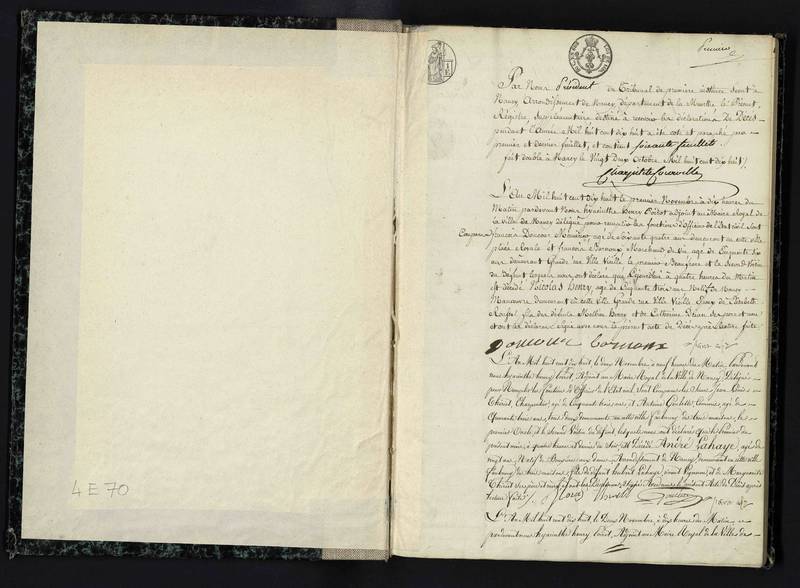 4 E 70
Premier
Par Nous Président du Tribunal de première instance séant à
Nancy arrondissement de Nancy, département de la Meurthe le Présent
Registre, supplémentaire destiné à recevoir les déclarations De Décès
pendant l'Année Mil huit cent dix huit a été coté et paraphé par
premier et dernier feuillet, et contient soixante feuillets.
fait double à Nancy le Vingt Deux Octobre Mil huit cent dix huit
L'An Mil huit cent dix huit le premier Novembre à dix heures du
Matin pardevant Nous hyacinthe henry adjoint au Maire Royal de
la Ville de Nancy délégué pour remplir les fonctions d'Officier de l'Etat civil sont
Comparu françois Doucour agé de soixante quatre ans demeurant en cette ville
place Royale et françois Marchand de agé de Cinquante
ans demeurant Grande rue Ville Vieille le premier Beaufrere et le second Voisin
du défunt lesquels nous ont déclaré que à quatre heures du Matin
est décédé Nicolas henry, agé de Cinquante trois ans Natif de Nancy
Manœuvre demeurant en cette ville Grande rue Ville Vieille Epoux de Elisabeth
fils des défunts henry et de Catherine ses pere et mere
et ont les déclarans signé avec nous le présent acte de Décès après lecture faite
L'An Mil huit cent dix huit, le deux Novembre à neuf heures du Matin, pardevant
nous hyacinthe henry Adjoint au Maire Royal de la Ville de Nancy, délégué
pour Remplir les fonctions d'Officier de l'Etat civil, sont Comparus les Sieurs Jean
Thiriet, Charpentier, agé de Cinquante trois ans, et Antoine Commis, agé de
Quarante trois ans, tous deux demeurants en cette ville faubourg des trois maisons, le
premier Oncle, et le second Voisin du défunt, lesquels nous ont déclaré que le premier du
présent mois, à quatre heures et demie du Soir, est Décédé André Lahaye, agé de
vingt ans Natif de Arrondissement de Nancy, demeurant en cette ville
faubourg des trois maisons, fils de défunt Lahaye, vivant Vigneron, et de Marguerite
Thiriet ses père et mère, et ont les Déclarans Signé Avec nous le présent Acte de Décès après
lecture faite
L'An Mil huit cent dix huit, le Deux Novembre, à dix heures du Matin,
pardevant nous hyacinthe henry Adjoint au Maire Royal de la Ville de